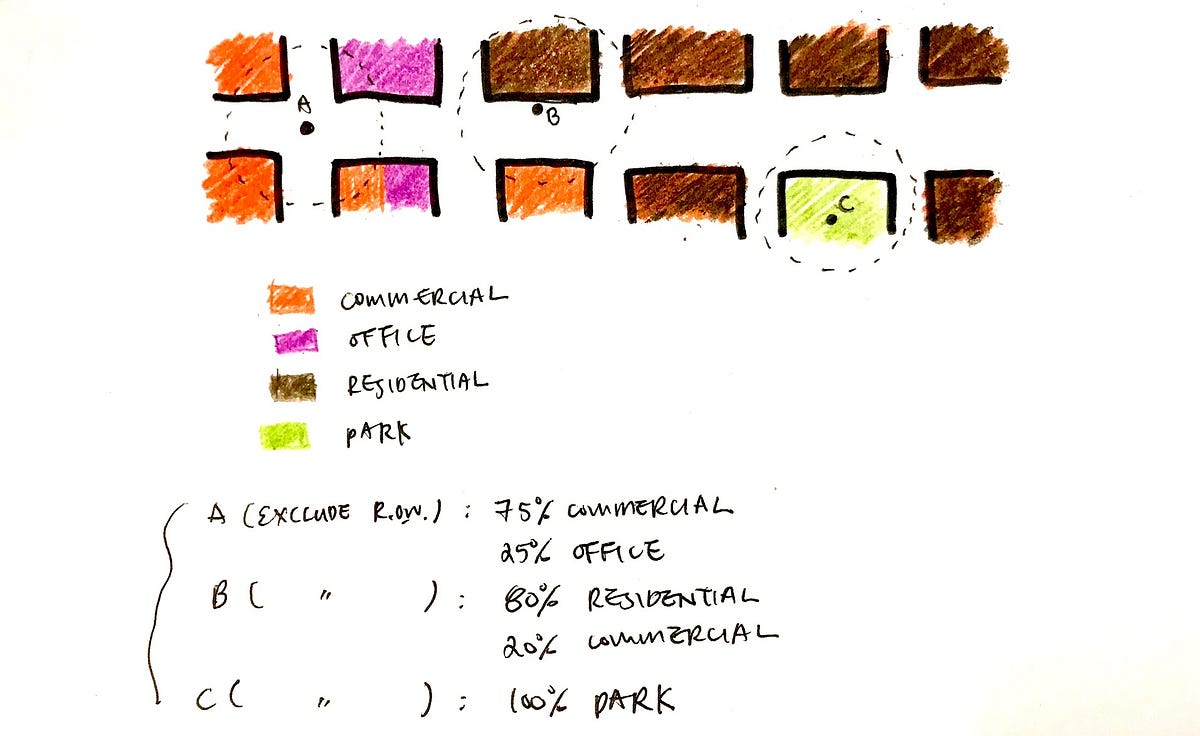 A
B
C
COMMERCIAL
OFFICE
RESIDENTIAL
PARK
A (EXCLUDE R.O.W.) : 75% COMMERCIAL
25% OFFICE
B ( " ) : 80% RESIDENTIAL
20% COMMERCIAL
C ( " ) : 100% PARK